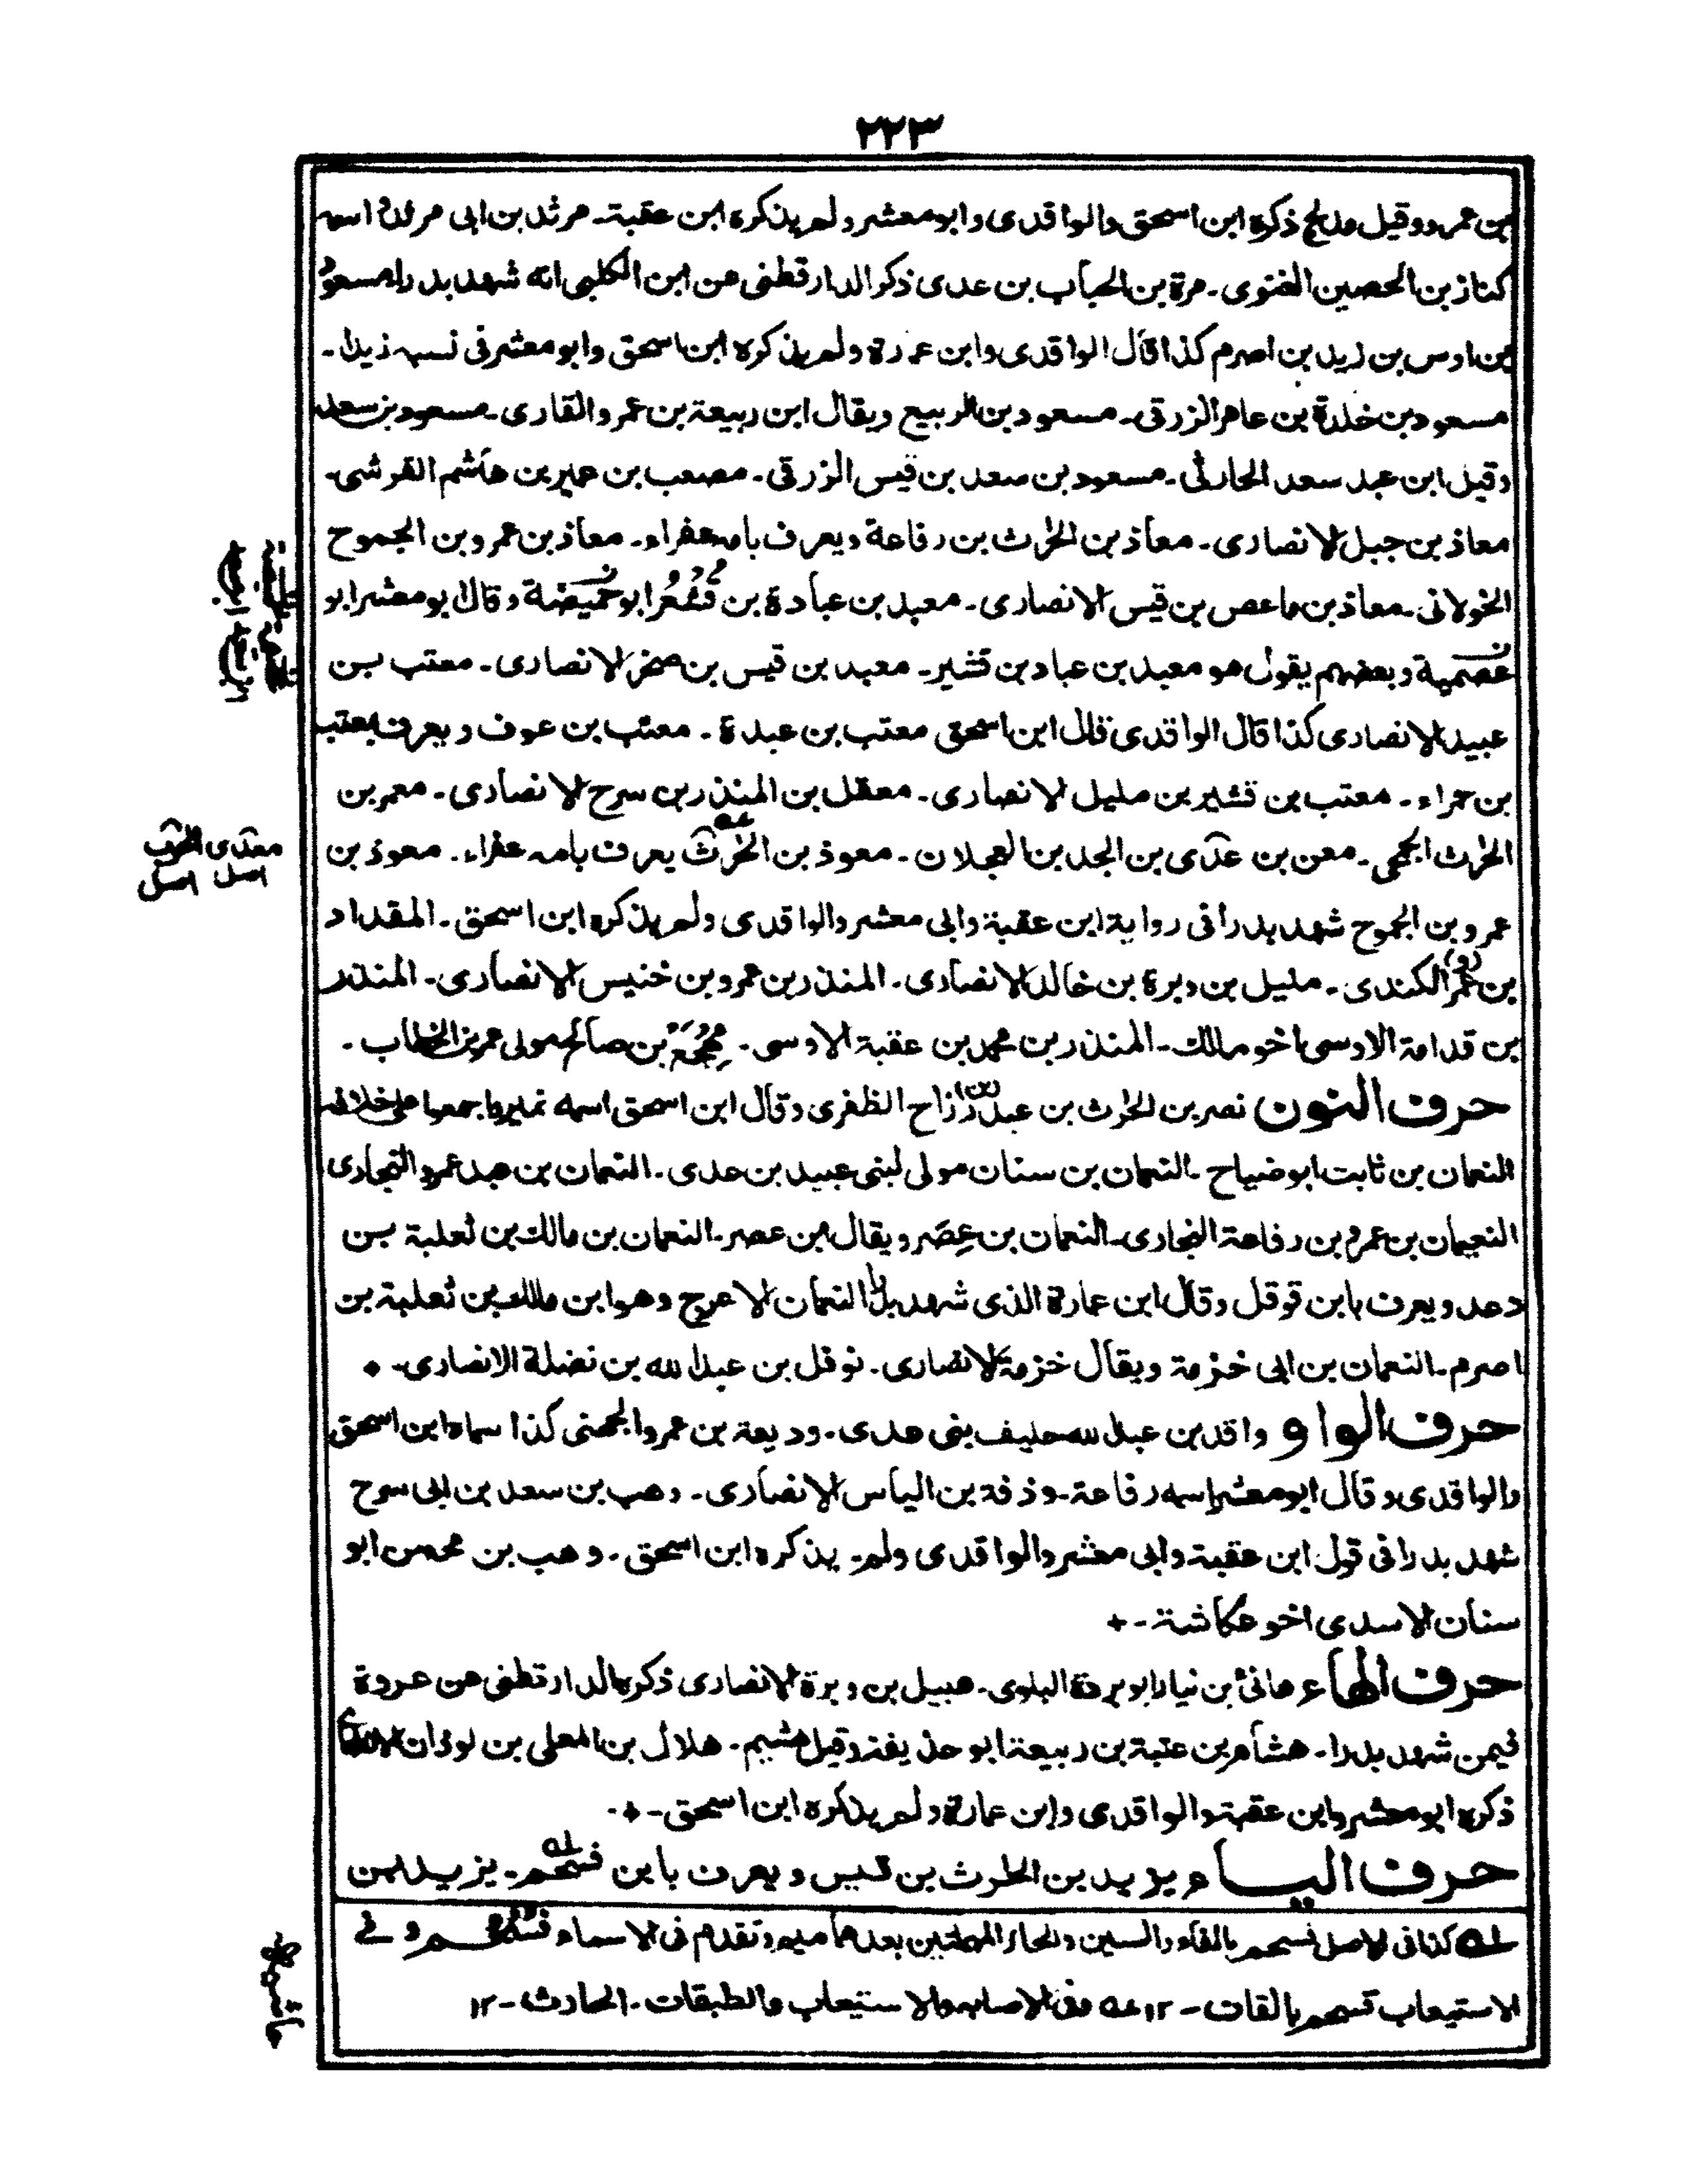 ٢٢٣
بن عمرو وقيل مدلج ذكره ابن اسحق والواقدى وابو معشر ولم يذكره ابن عقبة۔ مرثد بن ابى مرثد واسمه
كناز بن الحصين الغنوى۔ مرة بن الحباب بن عدى ذكر الدارقطنى عن ابن الكلبى انه شهد بدرا۔ مسعود
بن اوس بن زيد بن اصرم كذا قال الواقدى وابن عمارة ولم يذكره ابن اسحق وابو معشر فى نسبه زيدا۔
مسعود بن خلدة بن عامر الزرقى۔ مسعود بن الربيع ويقال ابن ربيعة بن عمرو القارى۔ مسعود بن سعد
وقيل ابن عبد سعد الحارثى۔ مسعود بن سعد بن قيس الزرقى۔ مصعب بن عمير بن هاشم القرشى۔
معاذ بن جبل الانصارى۔ معاذ بن الحرث بن رفاعة ويعرف بامه عفراء۔ معاذ بن عمرو بن الجموح
الخولانى۔ معاذ بن ماعص بن قيس الانصارى۔ معبد بن عبادة بن قُشْعُر ابو حُمَيضة وقال ابو معشر ابو
عصمية وبعضهم يقول هو معبد بن عباد بن قشير۔ معبد بن قيس بن صخر الانصارى۔ معتب بن
عبيد الانصارى كذا قال الواقدى قال ابن اسحق معتب بن عبدة۔ معتب بن عوف ويعرف بمعتب
بن حمراء۔ معتب بن قشير بن مليل الانصارى۔ معقل بن المنذر بن سرح الانصارى۔ معمر بن
الحرث الجمحى۔ معن بن عدى بن الجد بن العجلان۔ معوذ بن الحرث يعرف بامه عفراء۔ معوذ بن
معدى الحرث
اصل اصل
عمرو بن الجموح شهد بدرا فى رواية ابن عقبة وابى معشر والواقدى ولم يذكره ابن اسحق۔ المقداد
بن عمر(و) الكندى۔ مليل بن وبرة بن خالد الانصارى۔ المنذر بن عمرو بن خنيس الانصارى۔ المنذر
بن قدامة الاوسى اخو مالك۔ المنذر بن محمد بن عقبة الاوسى۔ مِهْجَعُ بن صالح مولى عمر بن الخطاب۔
حرف النون نصر بن الحرث بن عبد (بن) رزاح الظفرى وقال ابن اسحق اسمه نمير واجمعوا على خلافه
النعمان بن ثابت ابو ضياح۔ النعمان بن سنان مولى لبنى عبيد بن عدى۔ النعمان بن عبد عمرو النجارى
النعيمان بن عمرو بن رفاعة النجارى۔ النعمان بن عِصَر ويقال ابن عصر۔ النعمان بن مالك بن ثعلبة بن
دعد ويعرف بابن قوقل وقال ابن عمارة الذى شهد بدرا النعمان الاعرج وهو ابن مالك بن ثعلبة بن
اصرم۔ النعمان بن ابى خزمة ويقال خزمة الانصارى۔ نوفل بن عبد الله بن نضلة الانصارى۔ ٭
حرف الواو واقد بن عبد لله حليف بنى عدى۔ وديعة بن عمرو الجهنى كذا سماه ابن اسحق
والواقدى وقال ابو معشر اسمه رفاعة۔ وذفة بن الياس الانصارى۔ وهب بن سعد بن ابى سرح
شهد بدرا فى قول ابن عقبة وابى معشر والواقدى ولم يذكره ابن اسحق۔ وهب بن محصن ابو
سنان الاسدى اخو عكاشة۔ +
حرف الهاء هانئ بن نيار ابو بردة البلوى۔ هبيل بن وبرة الانصارى ذكره الدارقطنى عن عروة
فيمن شهد بدرا۔ هشام بن عتبة بن ربيعة ابو حذيفة وقيل هشيم۔ هلال بن المعلى بن لوذان الانصارى
ذكره ابو معشر وابن عقبة والواقدى وابن عمارة ولم يذكره ابن اسحق۔ +۔
حرف الياء يزيد بن الحرث بن قيس ويعرف بابن فسحم له۔ يزيد بن
له كذا فى الاصل فسحم بالفاء والسين والحاء المهملتين بعدها ميم وتقدم فى الاسماء وفى
الاستيعاب قسحم بالقاف۔ ١٢ عه وفى الاصابه والاستيعاب والطبقات۔ الحارث۔ ١٢